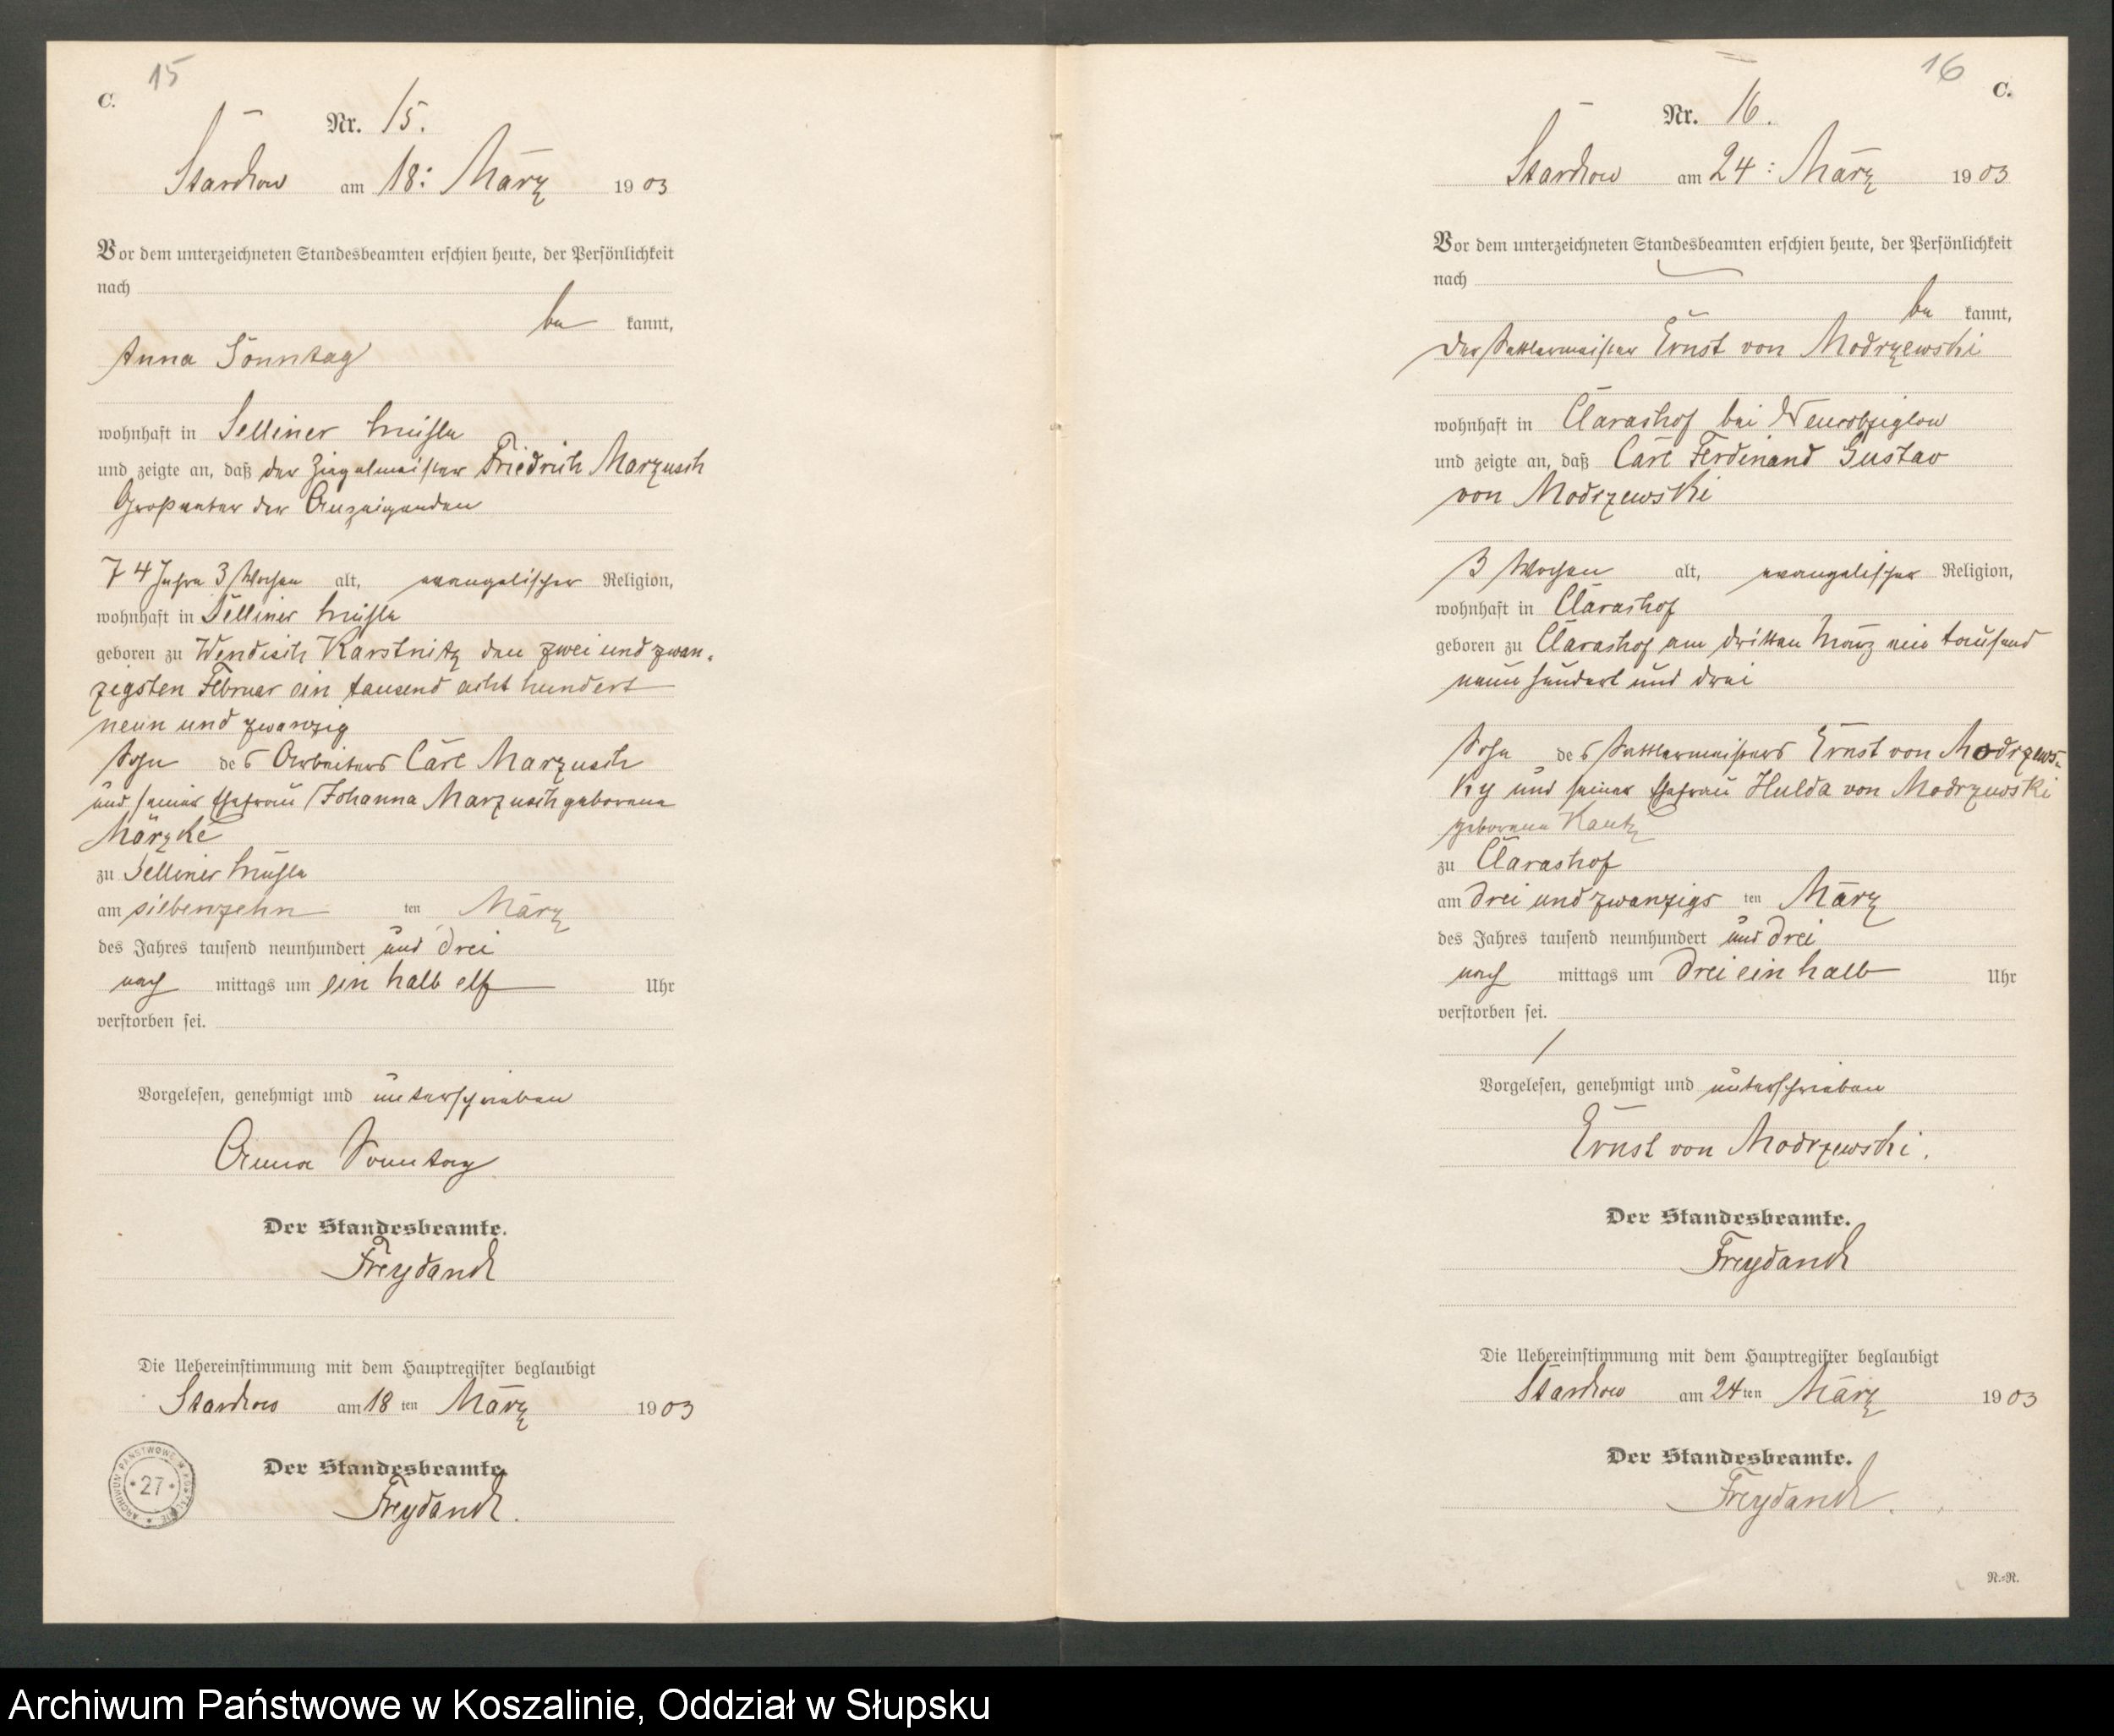 15
C.
Nr. 15.
Starckow am 18: März 1903
Vor dem unterzeichneten Standesbeamten erschien heute, der Persönlichkeit
nach
be kannt,
Anna Sonntag
wohnhaft in Selliner Mühle
und zeigte an, daß der Ziegelmeister Friedrich Marzusch
Großvater der Anzeigenden
74 Jahre 3 Wochen alt, evangelischer Religion,
wohnhaft in Selliner Mühle
geboren zu Wendisch Karstnitz den zwei und zwan-
zigsten Februar ein tausend acht hundert
neun und zwanzig
Sohn des Arbeiters Carl Marzusch
und seiner Ehefrau Johanna Marzusch geborene
Märzke
zu Selliner Mühle
am siebenzehn ten März
des Jahres tausend neunhundert und drei
nach mittags um ein halb elf Uhr
verstorben sei.
Vorgelesen, genehmigt und unterschrieben
Anna Sonntag
Der Standesbeamte.
Freydanck
Die Uebereinstimmung mit dem Hauptregister beglaubigt
Starckow am 18 ten März 1903
Der Standesbeamte.
Freydanck.
ARCHIWUM PAŃSTWOWE W KOSZALINIE
* 27 *
16
C.
Nr. 16.
Starckow am 24: März 1903
Vor dem unterzeichneten Standesbeamten erschien heute, der Persönlichkeit
nach
be kannt,
der Sattlermeister Ernst von Modrzewski
wohnhaft in Clarashof bei Neukolziglow
und zeigte an, daß Carl Ferdinand Gustav
von Modrzewski
3 Wochen alt, evangelischer Religion,
wohnhaft in Clarashof
geboren zu Clarashof am dritten März ein tausend
neun hundert und drei
Sohn des Sattlermeisters Ernst von Modrzews-
ky und seiner Ehefrau Hulda von Modrzewski
geborene Kautz
zu Clarashof
am drei und zwanzigs ten März
des Jahres tausend neunhundert und drei
nach mittags um drei ein halb Uhr
verstorben sei.
Vorgelesen, genehmigt und unterschrieben
Ernst von Modrzewski.
Der Standesbeamte.
Freydanck
Die Uebereinstimmung mit dem Hauptregister beglaubigt
Starckow am 24 ten März 1903
Der Standesbeamte.
Freydanck.
R.=R.
Archiwum Państwowe w Koszalinie, Oddział w Słupsku